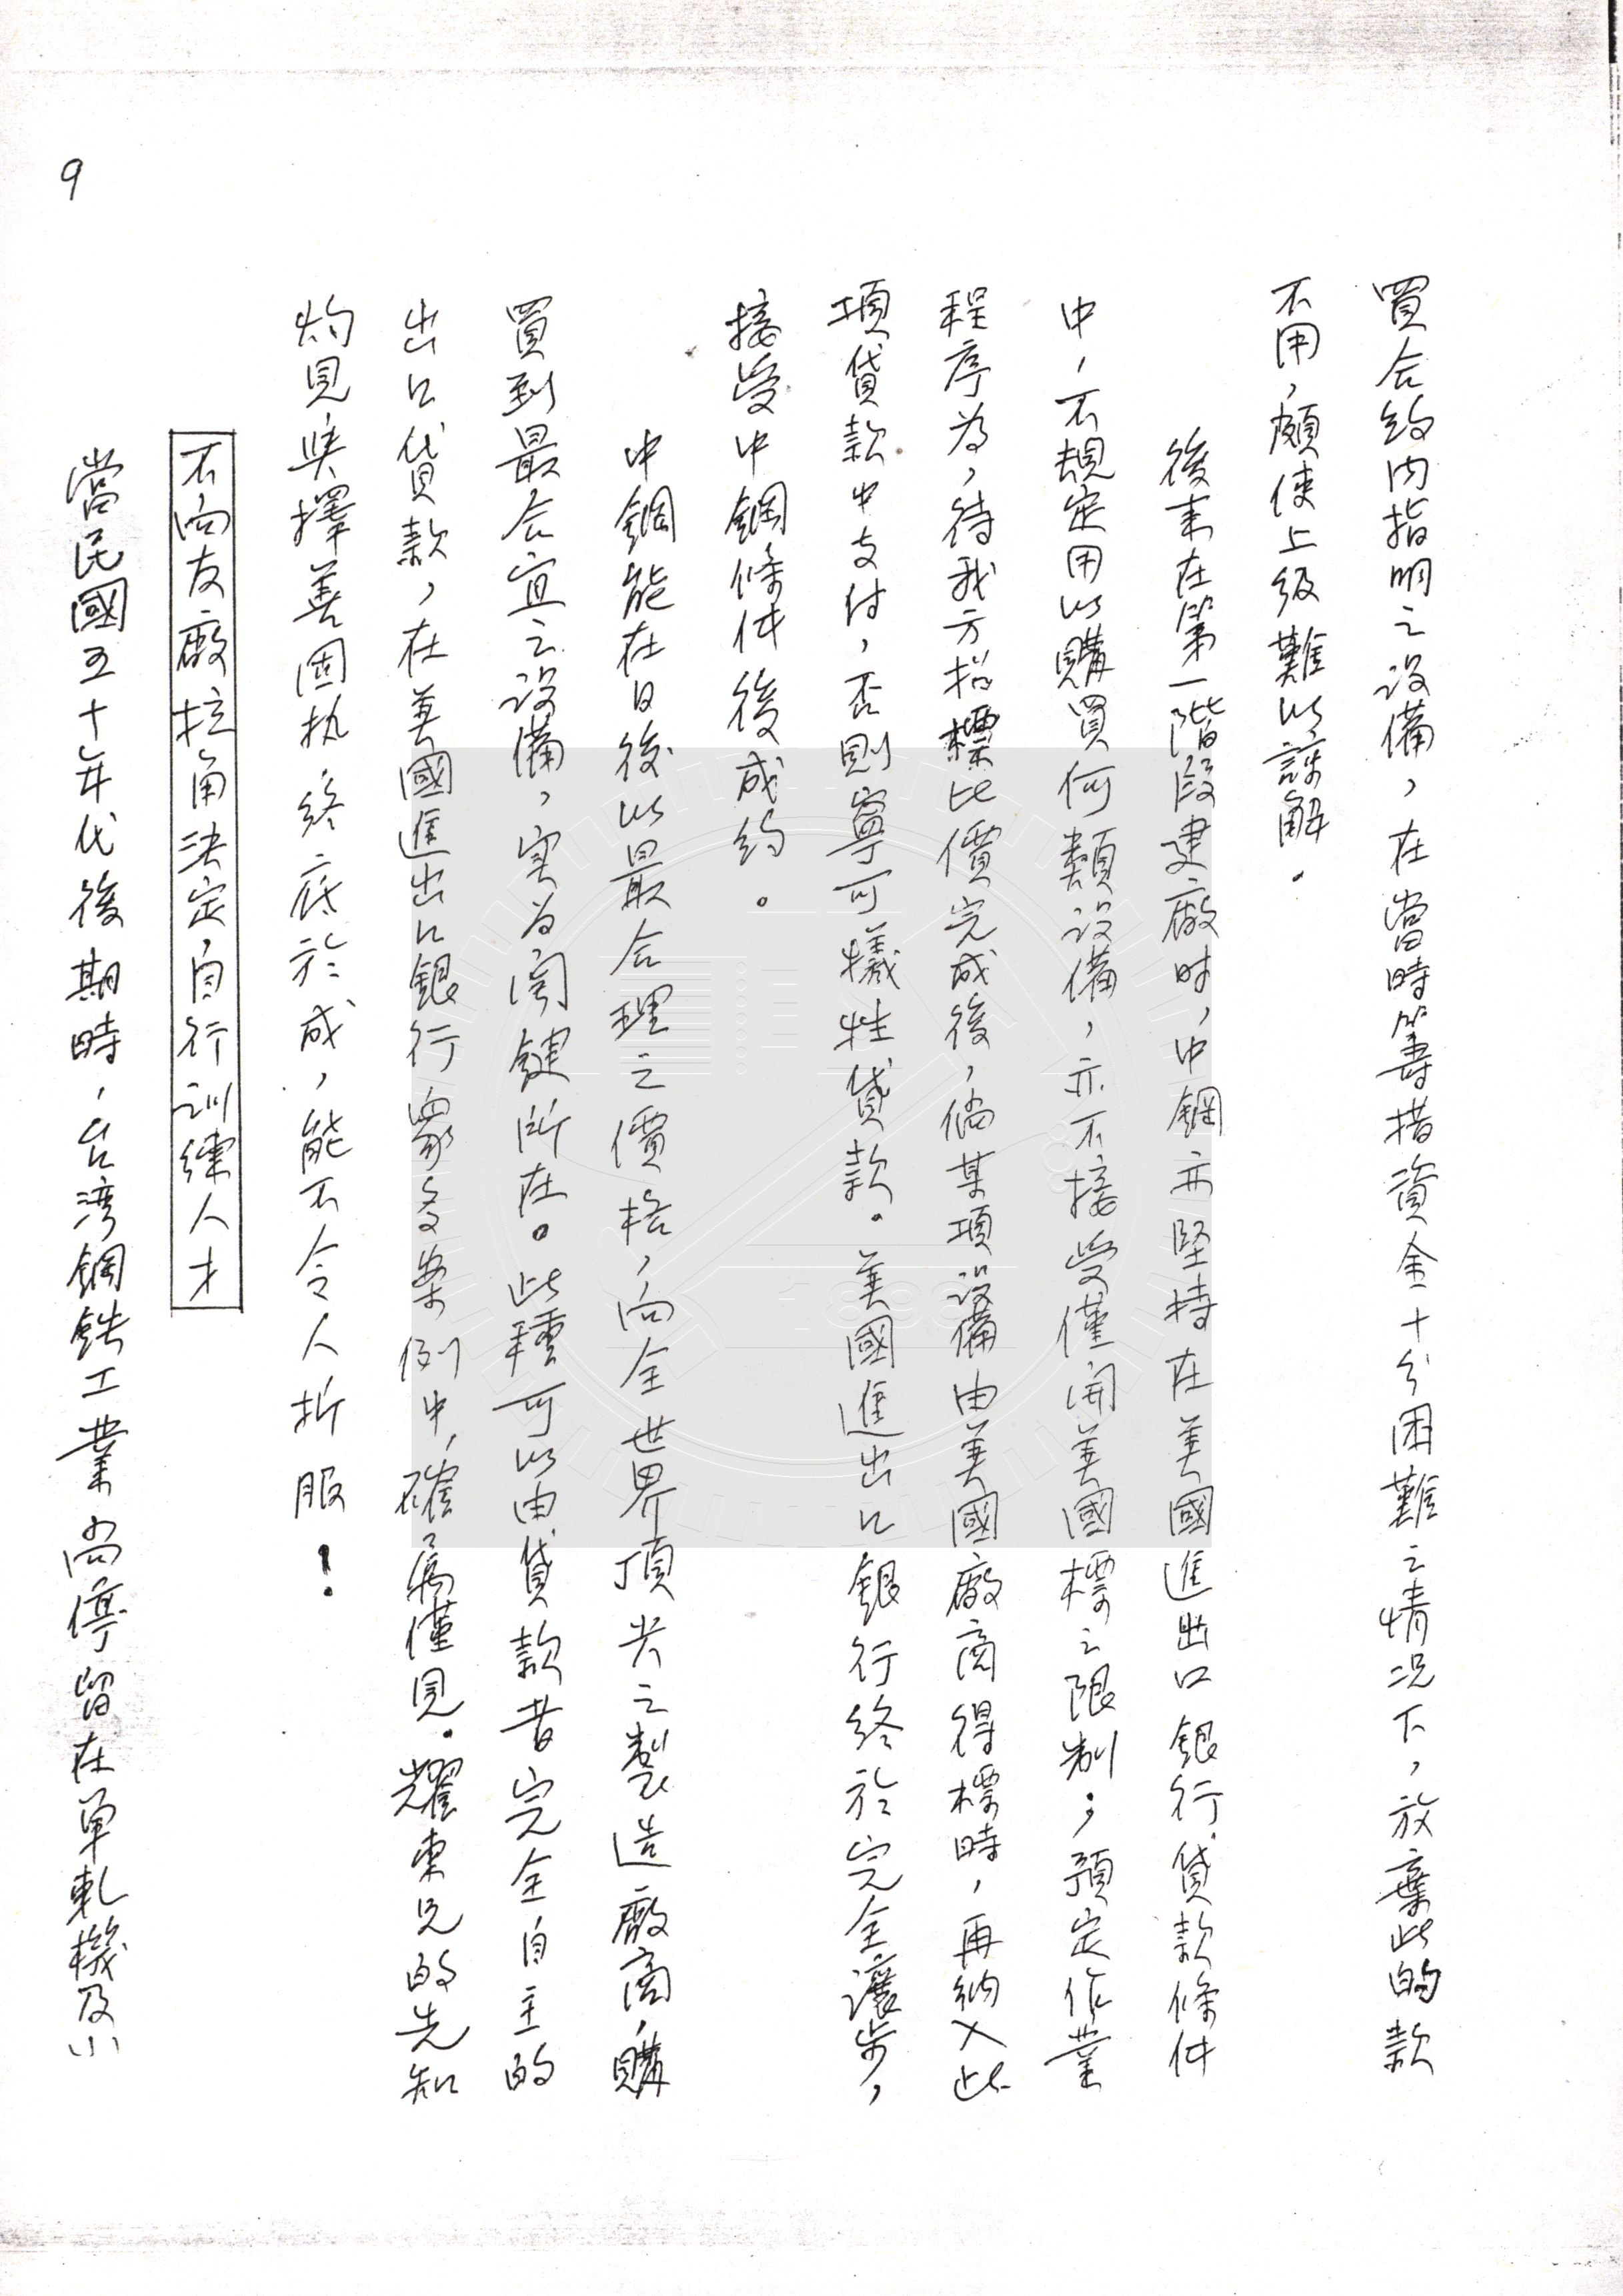 買合約內指明之設備，在當時籌措資金十分困難之情況下，放棄此的款
不用，頗使上級難以諒解．
後來在第一階段建廠时，中鋼亦堅持在美國進出口銀行貸款條件
中，不規定用以購買何類設備，亦不接受僅開美國標之限制；預定作業
程序为，待我方招標比價完成後，倘某項設備由美國廠商得標時，再納入此
項貸款中支付，否則寧可犠牲貸款。美國進出口銀行終於完全讓步，
接受中鋼條件後成約。
中鋼能在日後以最合理之價格，向全世界頂尖之製造廠商，購
買到最合宜之設備，实为関鍵所在。此種可以由貸款者完全自主的
出口貸款，在美國進出口銀行眾多案例中，確为僅見。耀東兄的先知
灼見與擇善固执終底於成，能不令人折服！
不向友廠挖角決定自行訓練人才
當民國五十年代後期時，台湾鋼鉄工業尚停留在单軋機及小
9
1898